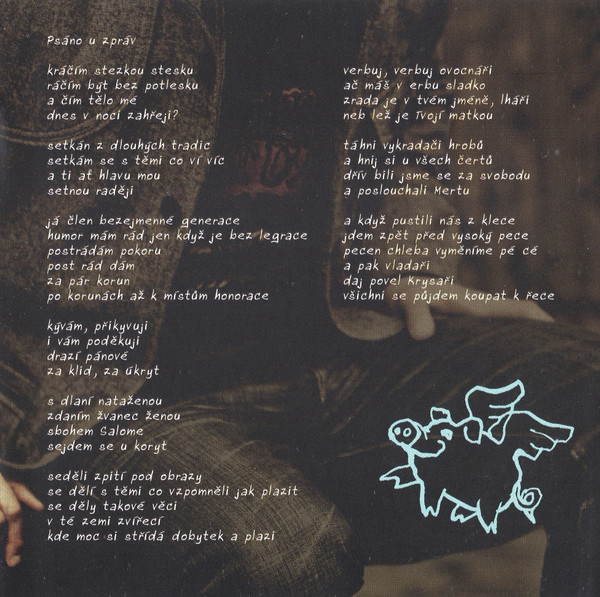 Psáno u zpráv
kráčím stezkou stesku
ráčím být bez potlesku
a čím tělo mé
dnes v noci zahřeji?
setkán z dlouhých tradic
setkám se s těmi co ví víc
a ti ať hlavu mou
setnou raději
já člen bezejmenné generace
humor mám rád jen když je bez legrace
postrádám pokoru
post rád dám
za pár korun
po korunách až k místům honorace
kývám, přikyvuji
i vám poděkuji
drazí pánové
za klid, za úkryt
s dlaní nataženou
zdaním žvanec ženou
sbohem Salome
sejdem se u koryt
seděli zpití pod obrazy
se dělí s těmi co vzpomněli jak plazit
se děly takové věci
v té zemi zvířecí
kde moc si střídá dobytek a plazi
verbuj, verbuj ovocnáři
ač máš v erbu sladko
zrada je v tvém jméně, lháři
neb lež je Tvojí matkou
táhni vykradači hrobů
a hnij si u všech čertů
dřív bili jsme se za svobodu
a poslouchali Mertu
a když pustili nás z klece
jdem zpět před vysoký pece
pecen chleba vyměníme pé cé
a pak vladaři
daj povel Krysaři
všichni se půjdem koupat k řece